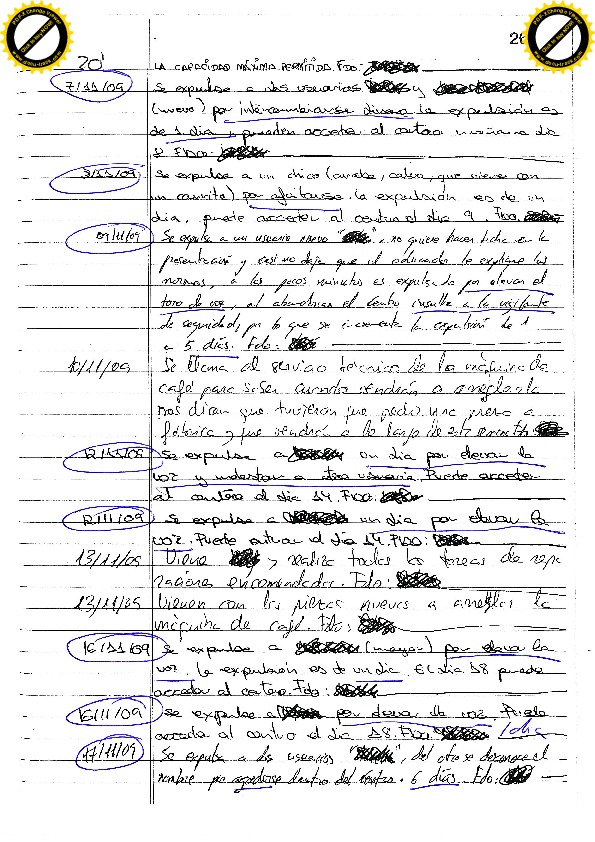 20'
26
LA CAPACIDAD MÁXIMA PERMITIDA. Fdo:
7/11/09 Se expulsa a dos usuarios y
(nuevo) por intercambiarse dinero la expulsión es
de 1 día, pueden acceder al centro mañana día
8. Fdo:
8/11/09 Se expulsa a un chico (, calvo, que viene con
un carrito) por afeitarse la expulsión es de un
día, puede acceder al centro el día 9. Fdo.
09/11/09 Se expulsa a un usuario nuevo " ", no quiere hacer ficha en la
presentación y casi no deja que el educador le explique las
normas, a los pocos minutos es expulsado por elevar el
tono de voz, al abandonar el centro insulta a la vigilante
de seguridad, por lo que se incrementa la expulsión de 1
a 5 días. Fdo:
10/11/09 Se llama al servicio técnico de la máquina de
café para saber cuando vendrán a arreglarla
nos dicen que tuvieron que pedir una pieza a
fábrica y que vendrán a lo largo de esta semana. Fdo:
12/11/09 Se expulsa a un día por elevar la
voz y molestar a otro usuario. Puede acceder
al centro el día 14. Fdo:
12/11/09 Se expulsa a un día por elevar la
voz. Puede entrar el día 14. Fdo:
13/11/09 Viene y realiza todas las tareas de repa
raciones encomendadas. Fdo:
13/11/09 Vienen con las piezas nuevas a arreglar la
máquina de café. Fdo:
16/11/09 Se expulsa a (mayor) por elevar la
voz. La expulsión es de un día. El día 18 puede
acceder al centro. Fdo:
16/11/09 Se expulsa a por elevar la voz. Puede
acceder al centro el día 18. Fdo: 1 día
17/11/09 Se expulsa a dos usuarios " ", del otro se desconoce el
nombre por agredirse dentro del centro. 6 días. Fdo: